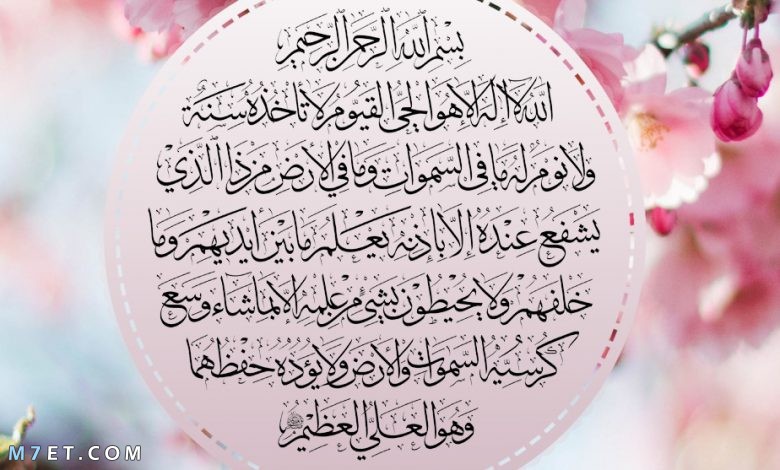 بِسْمِ اللَّهِ الرَّحْمَٰنِ الرَّحِيمِ
اللَّهُ لَا إِلَهَ إِلَّا هُوَ الْحَيُّ الْقَيُّومُ لَا تَأْخُذُهُ سِنَةٌ
وَلَا نَوْمٌ لَهُ مَا فِي السَّمَوَاتِ وَمَا فِي الْأَرْضِ مَنْ ذَا الَّذِي
يَشْفَعُ عِنْدَهُ إِلَّا بِإِذْنِهِ يَعْلَمُ مَا بَيْنَ أَيْدِيهِمْ وَمَا
خَلْفَهُمْ وَلَا يُحِيطُونَ بِشَيْءٍ مِنْ عِلْمِهِ إِلَّا بِمَا شَاءَ وَسِعَ
كُرْسِيُّهُ السَّمَوَاتِ وَالْأَرْضَ وَلَا يَؤُدُهُ حِفْظُهُمَا
وَهُوَ الْعَلِيُّ الْعَظِيمُ
M7ET.COM